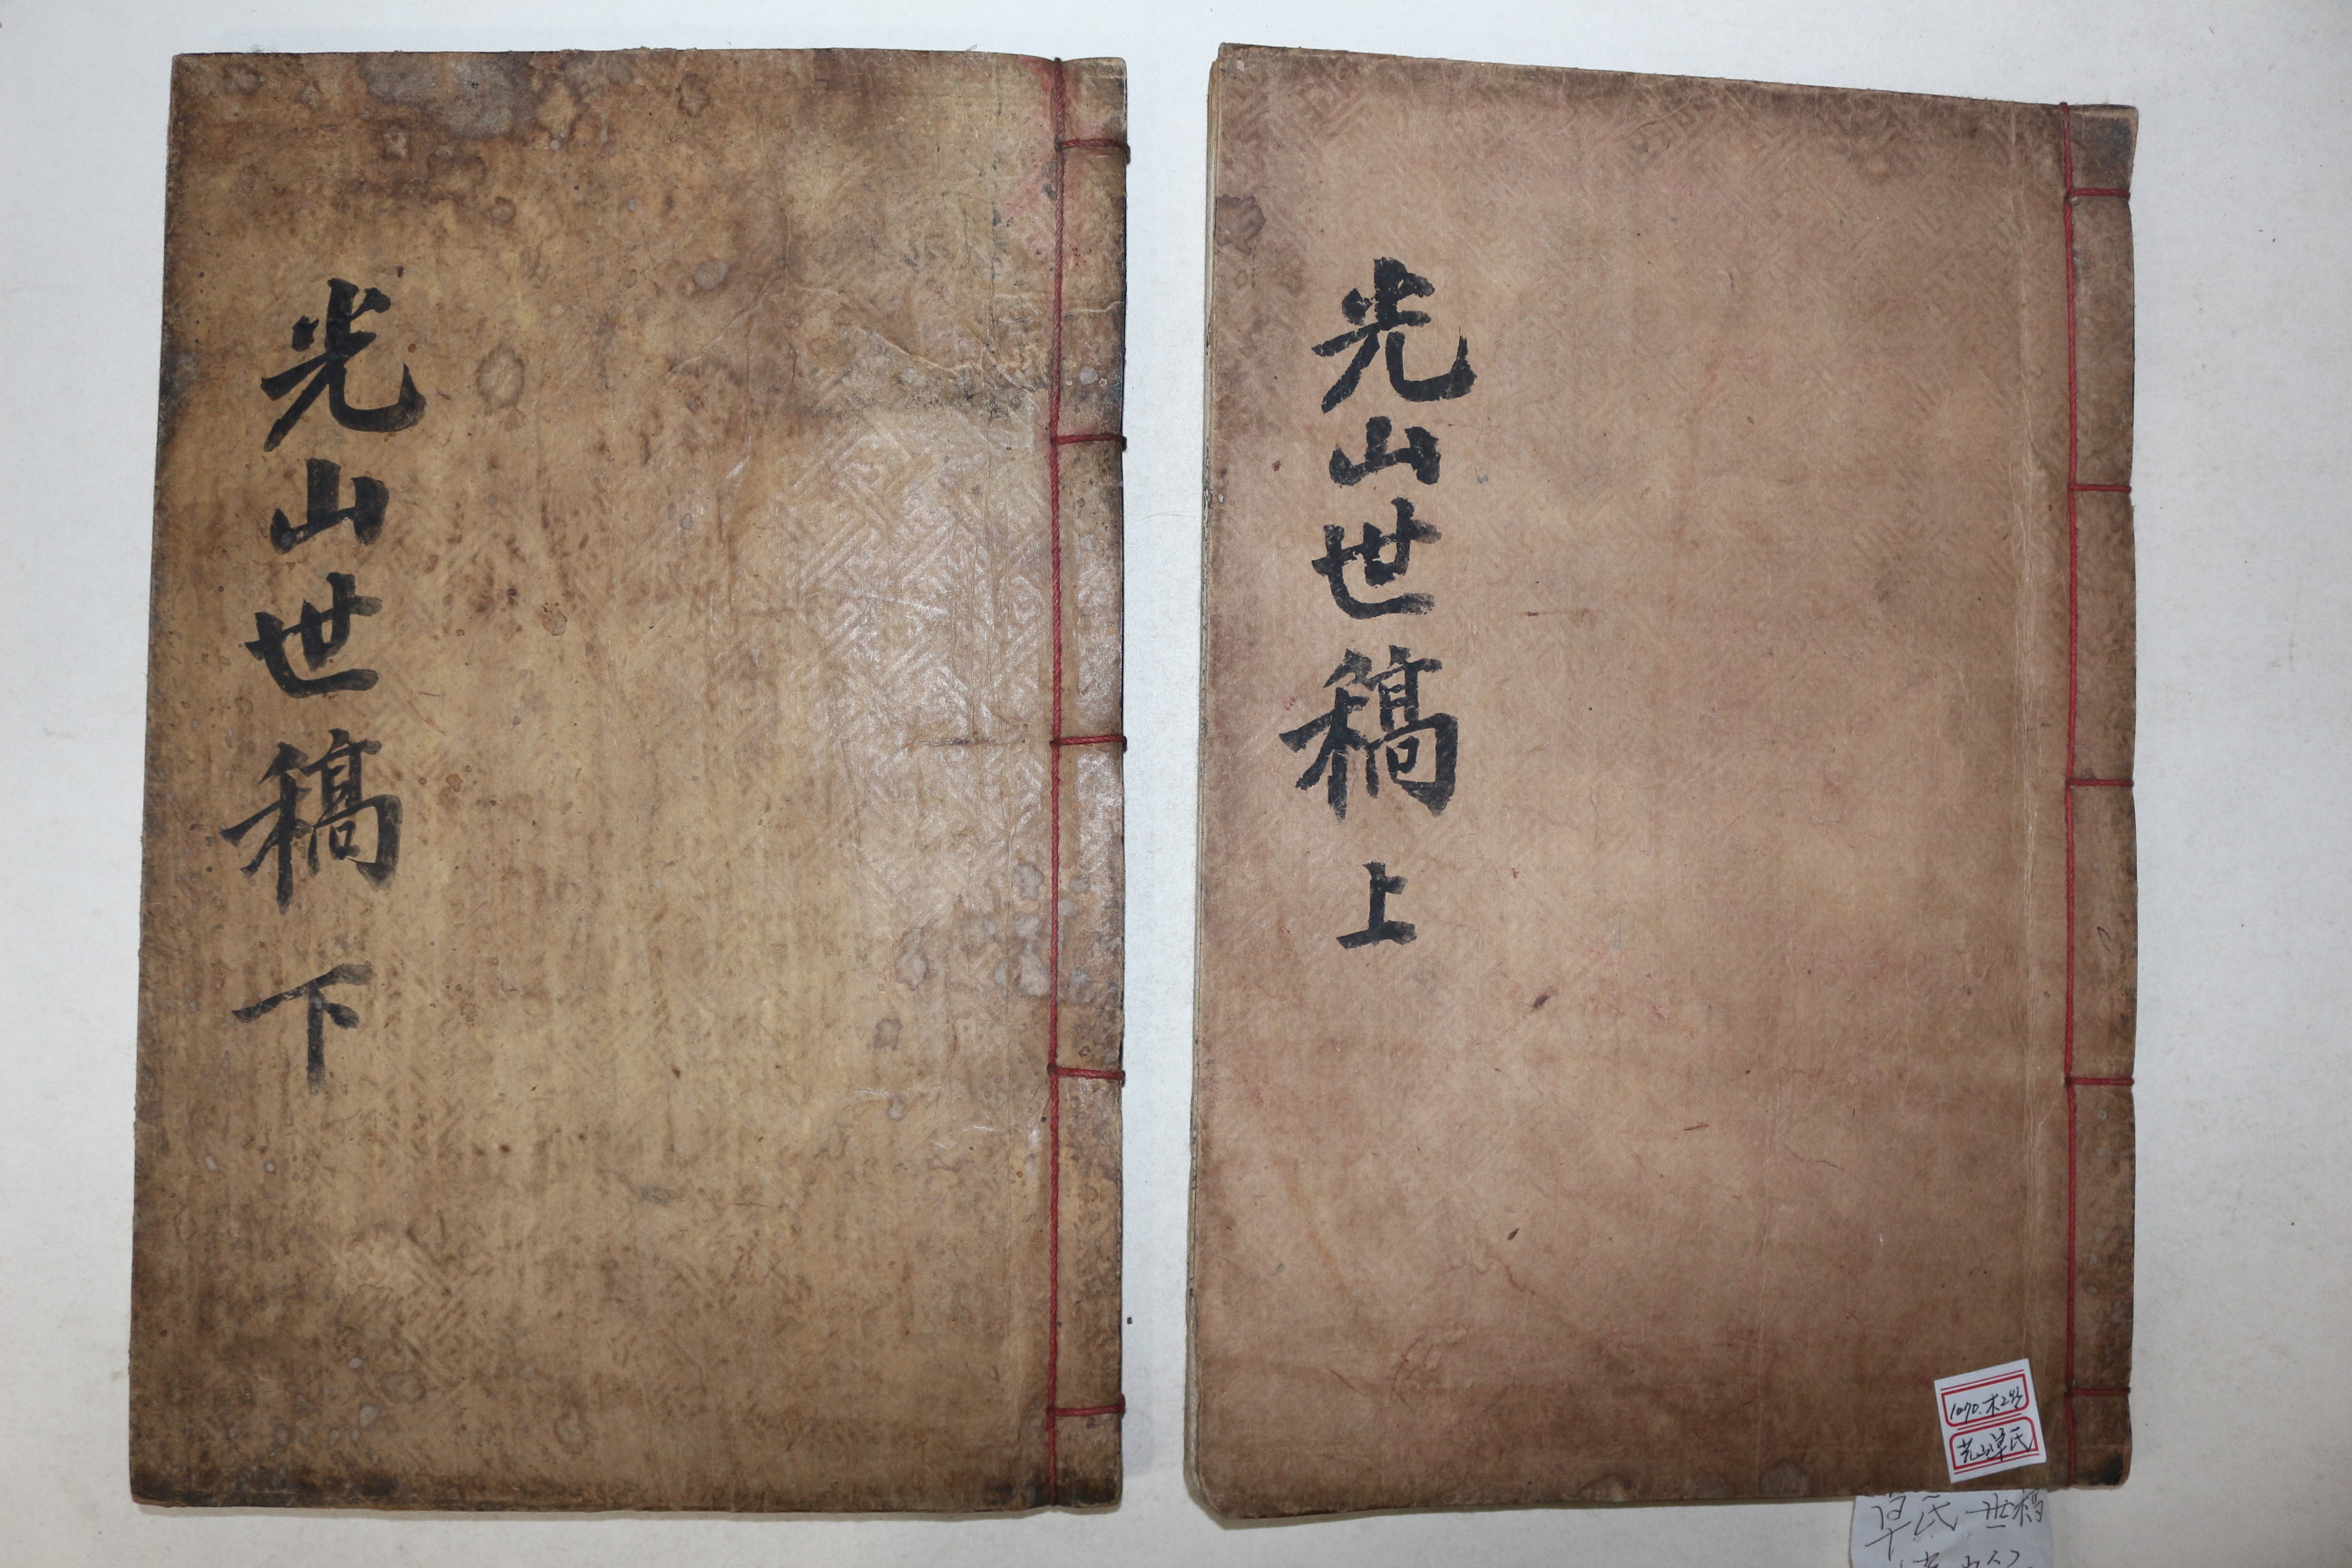 光山世稿 上
光山世稿 下
1070.木2
光山卓氏
卓氏世稿